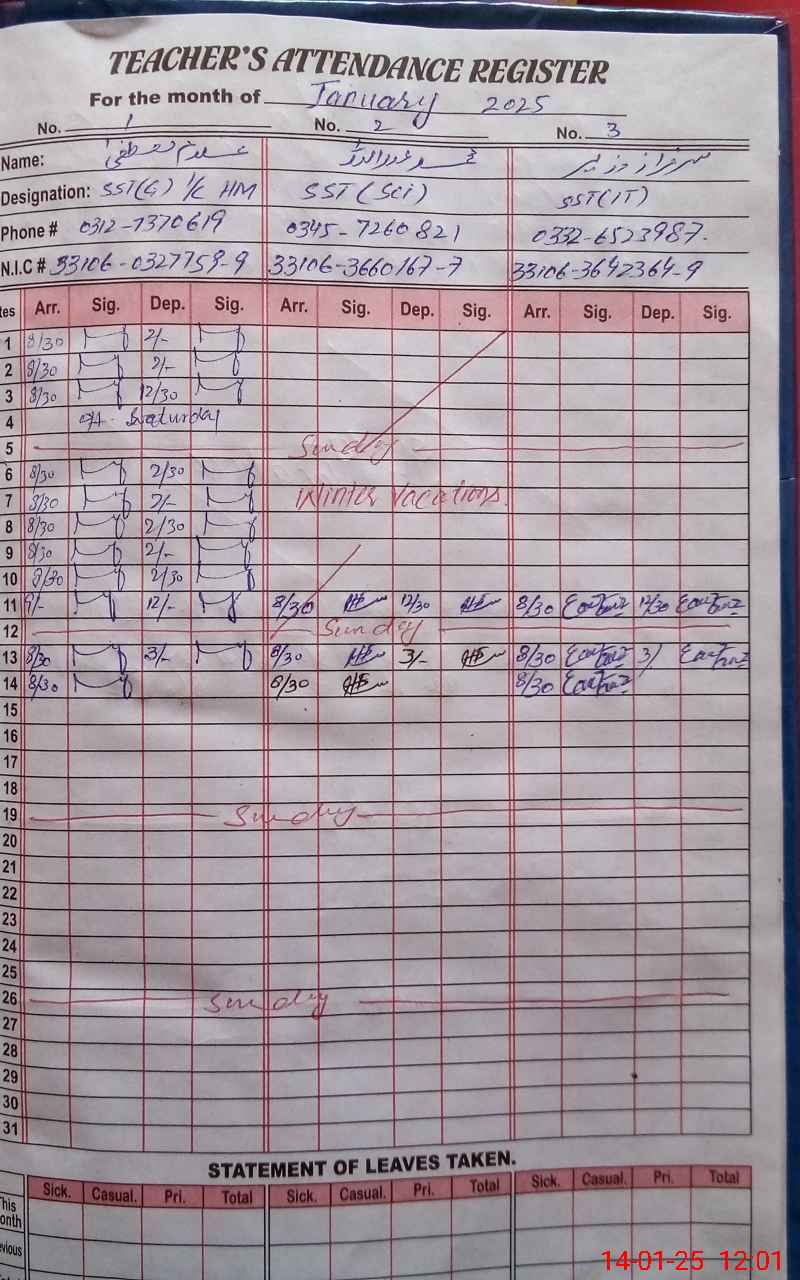 TEACHER'S ATTENDANCE REGISTER
For the month of January 2025
No. 1 No. 2 No. 3
Name: غلام مصطفیٰ
Designation: SST(G) I/C HM SST (Sci) SST(IT)
Phone # 0312-7370619 0345-7260821 0332-6523987.
N.I.C # 33106-0327759-9 33106-3660167-7 33106-3642364-9
tes Arr. Sig. Dep. Sig. Arr. Sig. Dep. Sig. Arr. Sig. Dep. Sig.
1 8/30 2/-
2 8/30 2/-
3 8/30 12/30
4 off Saturday
5 Sunday
6 8/30 2/30
7 8/30 2/- Winter Vacations.
8 8/30 2/30
9 8/30 2/-
10 8/30 2/30
11 9/- 12/- 8/30 12/30 8/30 12/30
12 Sunday
13 8/30 3/- 8/30 3/- 8/30 3/
14 8/30 8/30 8/30
15
16
17
18
19 Sunday
20
21
22
23
24
25
26 Sunday
27
28
29
30
31
STATEMENT OF LEAVES TAKEN.
Sick. Casual. Pri. Total Sick. Casual. Pri. Total Sick. Casual. Pri. Total
This
onth
evious
14-01-25 12:01